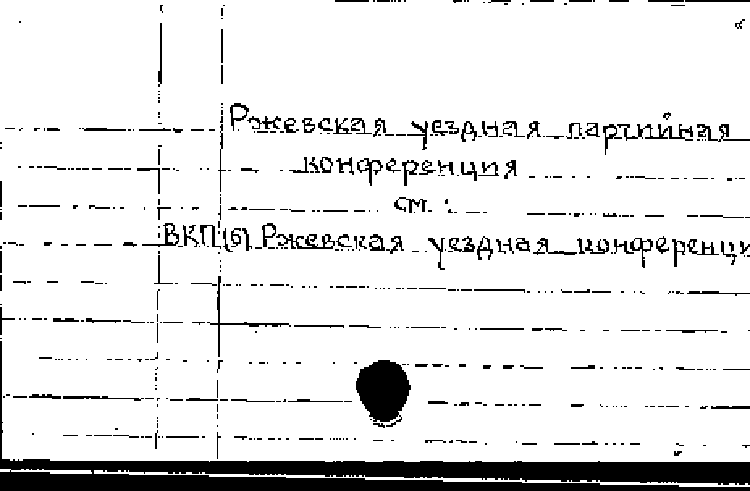 Ржевская уездная партийная
конференция
см.:
ВКП(б) Ржевская уездная конференци